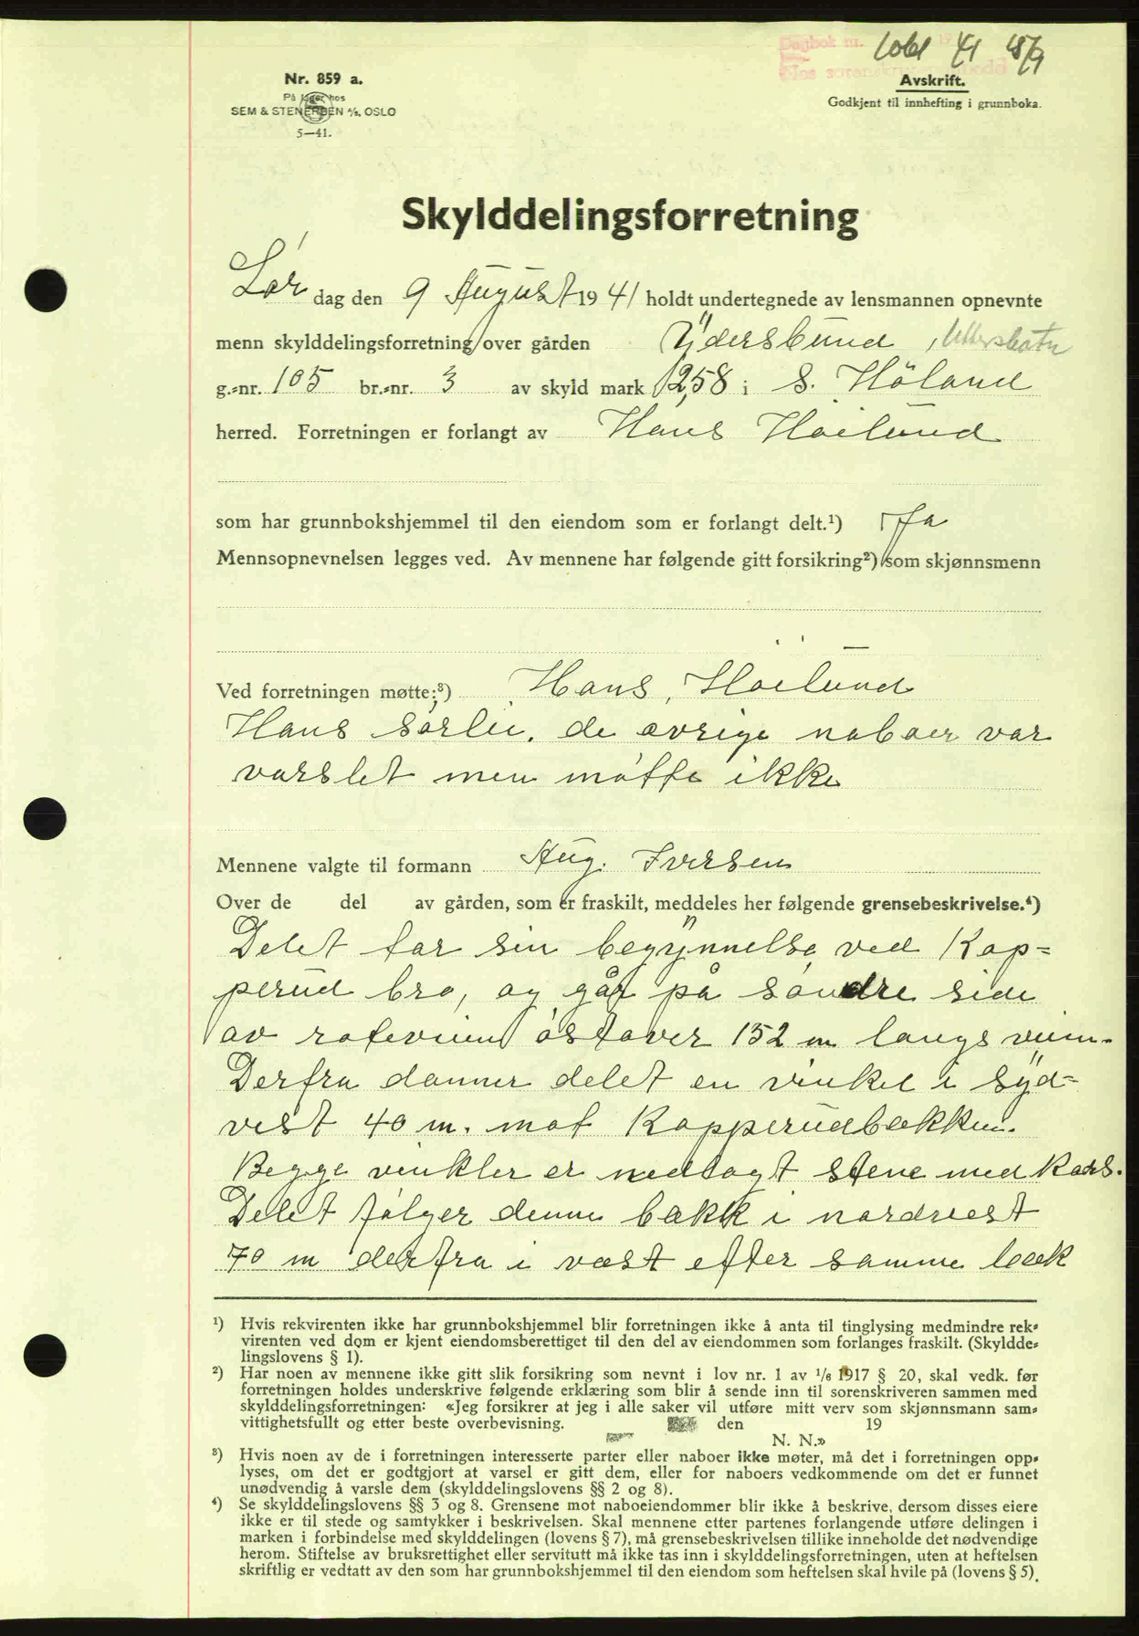 Dagbok nr. 1061 19 41 18/9
Nes sorenskriver
Nr. 859 a.
På lager hos
SEM & STENERSEN A/S, OSLO
5—41.
Avskrift.
Godkjent til innhefting i grunnboka.
Skylddelingsforretning
Lør dag den 9 August 1941 holdt undertegnede av lensmannen opnevnte
menn skylddelingsforretning over gården Ydersbund,
g.-nr. 105 br.-nr. 3 av skyld mark 2,58 i S. Höland
herred. Forretningen er forlangt av Hans Höilund
som har grunnbokshjemmel til den eiendom som er forlangt delt.¹) Ja
Mennsopnevnelsen legges ved. Av mennene har følgende gitt forsikring²) som skjønnsmenn
Ved forretningen møtte;³) Hans, Höilund
Hans Sørlie. de øvrige naboer var
varslet men møtte ikke
Mennene valgte til formann Aug. Iversen
Over de del av gården, som er fraskilt, meddeles her følgende grensebeskrivelse.⁴)
Delet tar sin begynnelse ved Kop=
perud bro, og går på söndre side
av roteveien östover 152 m langs veien.
Derfra danner delet en vinkel i syd=
vest 40 m. mot Kopperudbækken.
Begge vinkler er nedlagt stene med kors.
Delet følger denne bækk i nordvest
70 m derfra i væst efter samme bæk
¹) Hvis rekvirenten ikke har grunnbokshjemmel blir forretningen ikke å anta til tinglysing medmindre rek-
virenten ved dom er kjent eiendomsberettiget til den del av eiendommen som forlanges fraskilt. (Skyldde-
lingslovens § 1).
²) Har noen av mennene ikke gitt slik forsikring som nevnt i lov nr. 1 av ¹/₆ 1917 § 20, skal vedk. før
forretningen holdes underskrive følgende erklæring som blir å sende inn til sorenskriveren sammen med
skylddelingsforretningen: «Jeg forsikrer at jeg i alle saker vil utføre mitt verv som skjønnsmann sam-
vittighetsfullt og etter beste overbevisning. den 19
N. N.»
³) Hvis noen av de i forretningen interesserte parter eller naboer ikke møter, må det i forretningen opp-
lyses, om det er godtgjort at varsel er gitt dem, eller for naboers vedkommende om det er funnet
unødvendig å varsle dem (skylddelingslovens §§ 2 og 8).
⁴) Se skylddelingslovens §§ 3 og 8. Grensene mot naboeiendommer blir ikke å beskrive, dersom disses eiere
ikke er til stede og samtykker i beskrivelsen. Skal mennene etter partenes forlangende utføre delingen i
marken i forbindelse med skylddelingen (lovens § 7), må grensebeskrivelsen tillike inneholde det nødvendige
herom. Stiftelse av bruksrettighet eller servitutt må ikke tas inn i skylddelingsforretningen, uten at heftelsen
skriftlig er vedtatt av den som har grunnbokshjemmel til den eiendom som heftelsen skal hvile på (lovens § 5).